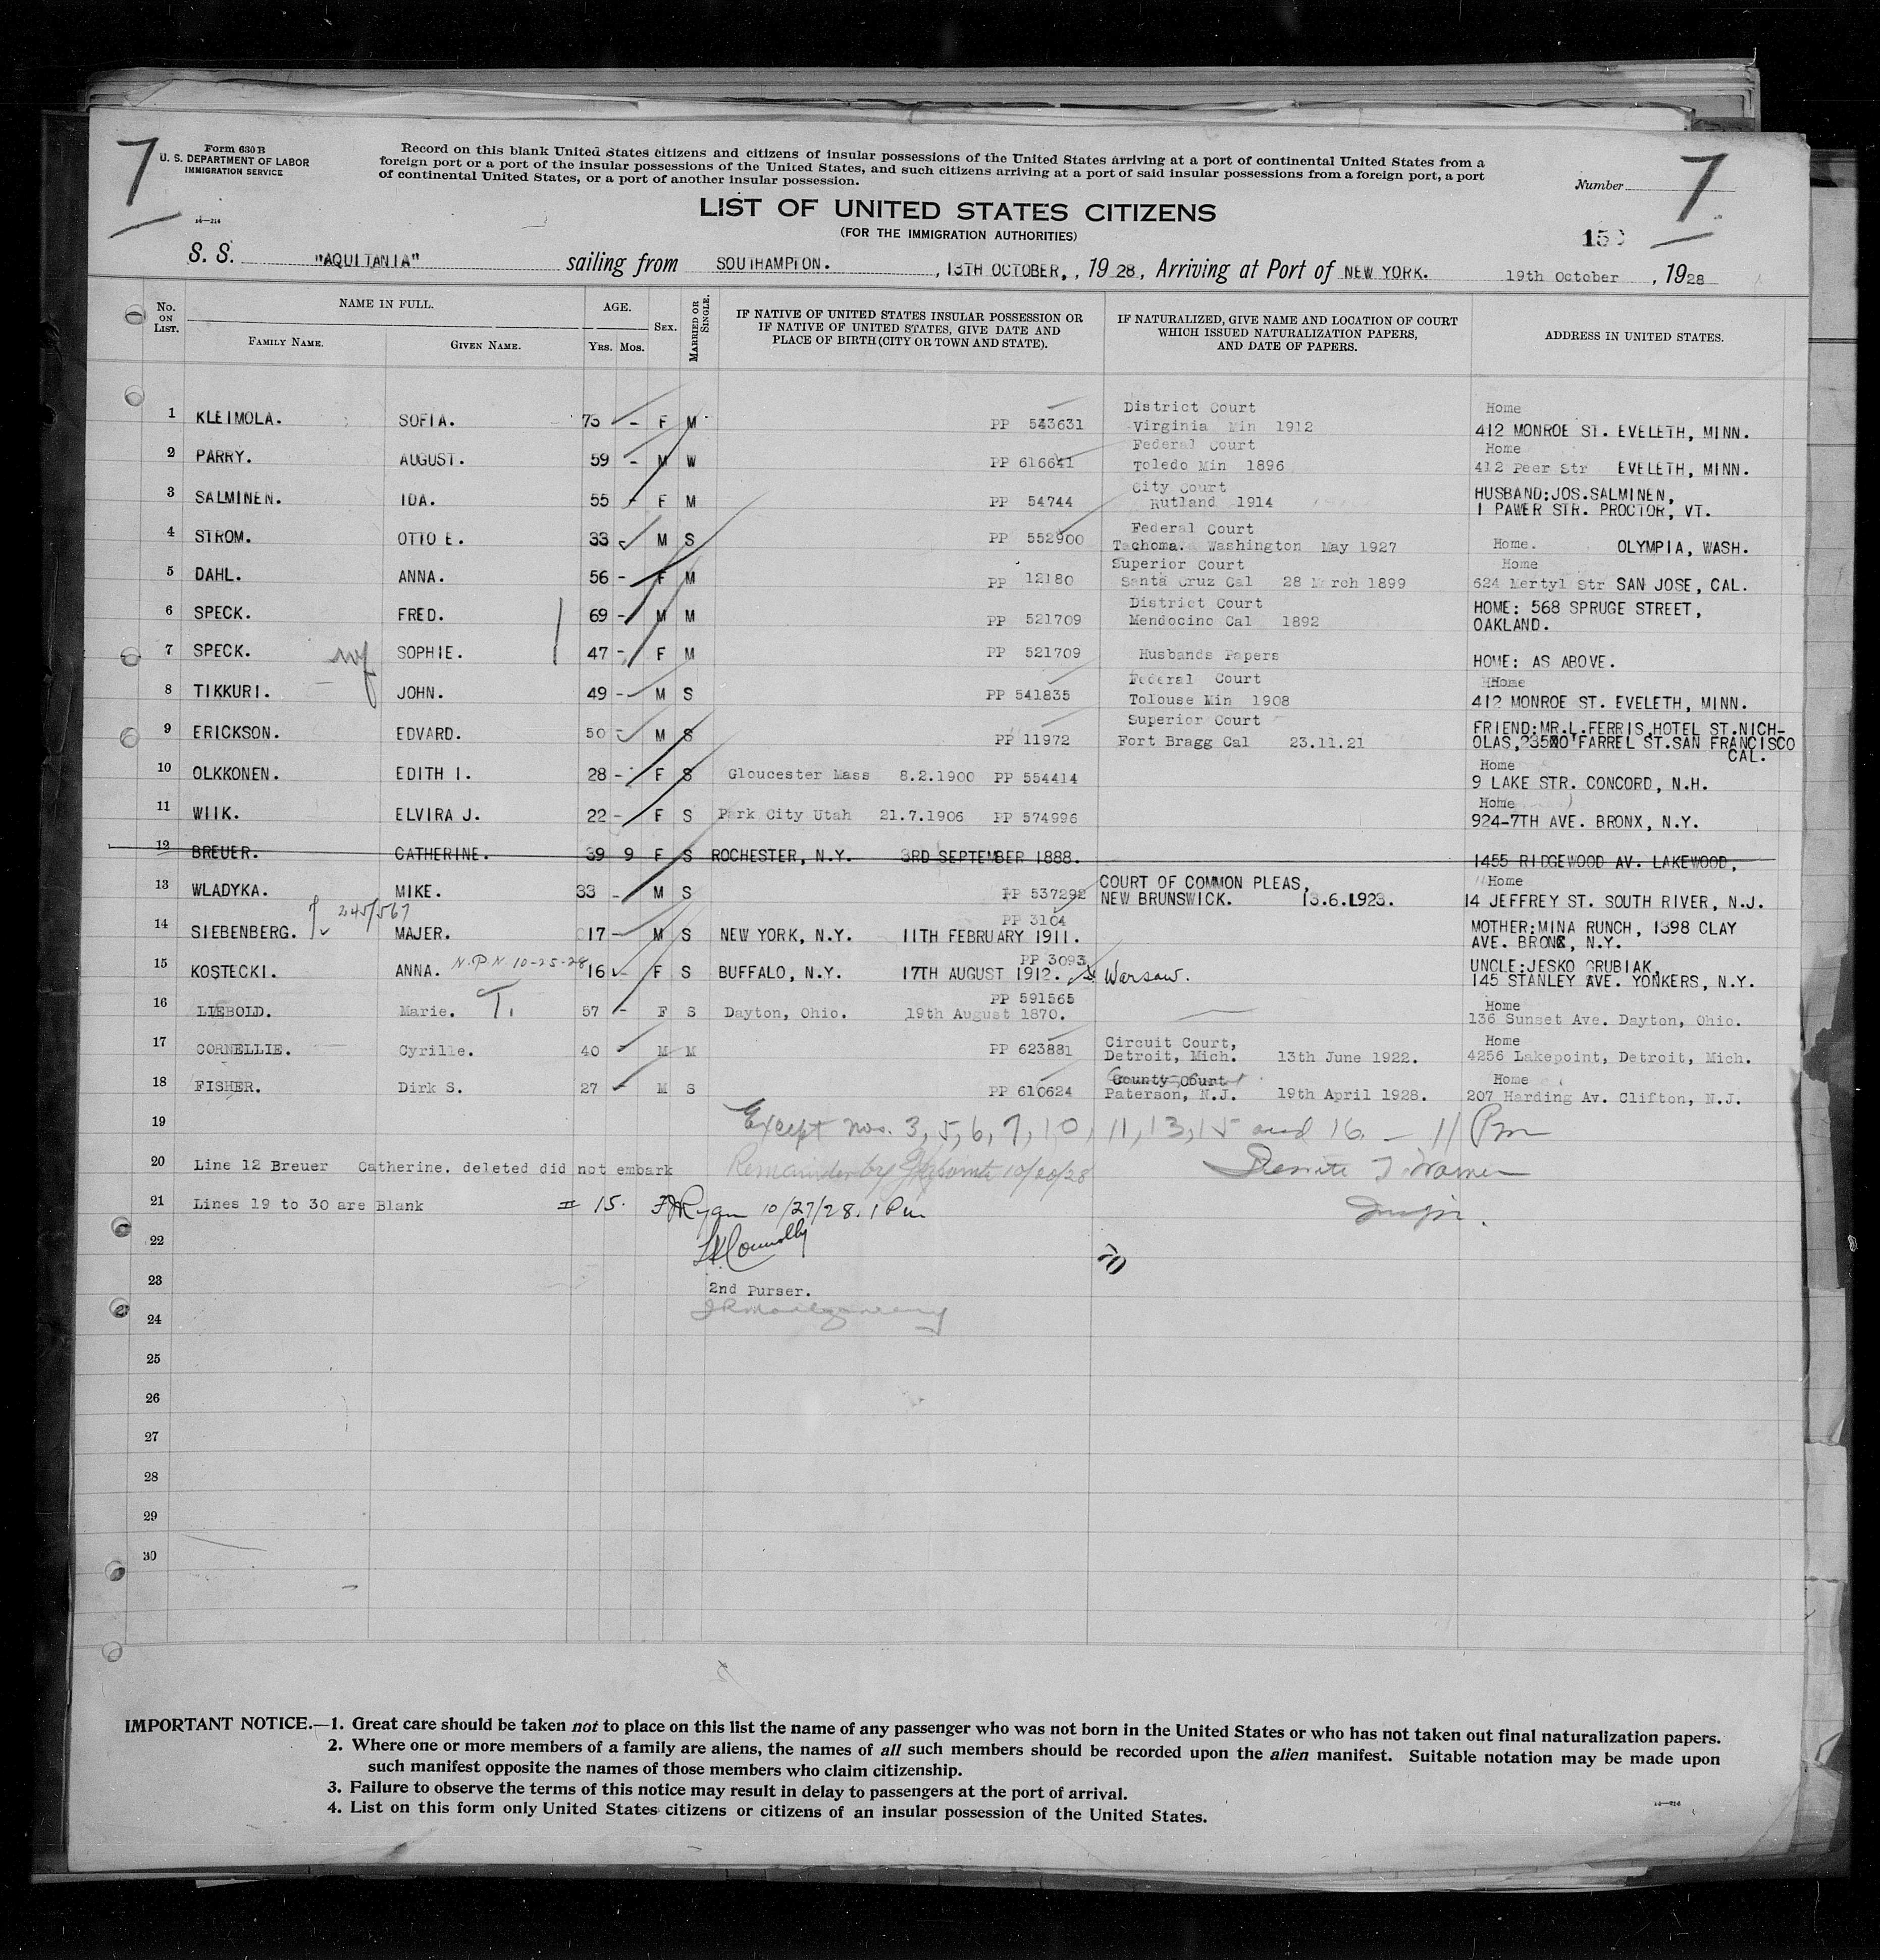 7
Form 630 B
U. S. DEPARTMENT OF LABOR
IMMIGRATION SERVICE
14—214
Record on this blank United States citizens and citizens of insular possessions of the United States arriving at a port of continental United States from a
foreign port or a port of the insular possessions of the United States, and such citizens arriving at a port of said insular possessions from a foreign port, a port
of continental United States, or a port of another insular possession.
Number 7
LIST OF UNITED STATES CITIZENS
(FOR THE IMMIGRATION AUTHORITIES)
15
S. S. "AQUITANIA" sailing from SOUTHAMPTON. , 13TH OCTOBER, , 1928, Arriving at Port of NEW YORK. 19th October , 1928
No. ON LIST. NAME IN FULL. AGE. SEX. MARRIED OR SINGLE. IF NATIVE OF UNITED STATES INSULAR POSSESSION OR IF NATIVE OF UNITED STATES, GIVE DATE AND PLACE OF BIRTH (CITY OR TOWN AND STATE). IF NATURALIZED, GIVE NAME AND LOCATION OF COURT WHICH ISSUED NATURALIZATION PAPERS, AND DATE OF PAPERS. ADDRESS IN UNITED STATES.
FAMILY NAME. GIVEN NAME. YRS. MOS.
District Court Home
1 KLEIMOLA. SOFIA. 73 - F M PP 543631 Virginia Min 1912 412 MONROE ST. EVELETH, MINN.
Federal Court Home
2 PARRY. AUGUST. 59 - M W PP 616641 Toledo Min 1896 412 Peer Str EVELETH, MINN.
City Court HUSBAND:JOS.SALMINEN,
3 SALMINEN. IDA. 55 - F M PP 54744 Rutland 1914 1 PAWER STR. PROCTOR, VT.
Federal Court
4 STROM. OTTO E. 33 M S PP 552900 Tachoma. Washington May 1927 Home. OLYMPIA, WASH.
Superior Court Home
5 DAHL. ANNA. 56 - F M PP 12180 Santa Cruz Cal 28 March 1899 624 Mertyl Str SAN JOSE, CAL.
District Court HOME: 568 SPRUGE STREET,
6 SPECK. FRED. 69 - M M PP 521709 Mendocino Cal 1892 OAKLAND.
7 SPECK. wf SOPHIE. 47 - F M PP 521709 Husbands Papers HOME: AS ABOVE.
Federal Court Home
8 TIKKURI. JOHN. 49 - M S PP 541835 Tolouse Min 1908 412 MONROE ST. EVELETH, MINN.
Superior Court FRIEND:MR.L.FERRIS,HOTEL ST.NICH-
9 ERICKSON. EDVARD. 50 - M S PP 11972 Fort Bragg Cal 23.11.21 OLAS, O'FARREL ST.SAN FRANCISCO
CAL.
Home
10 OLKKONEN. EDITH I. 28 - F S Gloucester Mass 8.2.1900 PP 554414 9 LAKE STR. CONCORD, N.H.
Home
11 WIIK. ELVIRA J. 22 - F S Park City Utah 21.7.1906 PP 574996 924-7TH AVE. BRONX, N.Y.
12 BREUER. CATHERINE. 39 9 F S ROCHESTER, N.Y. 3RD SEPTEMBER 1888. 1455 RIDGEWOOD AV. LAKEWOOD,
COURT OF COMMON PLEAS, Home
13 WLADYKA. MIKE. 33 - M S PP 537292 NEW BRUNSWICK. 13.6.1923. 14 JEFFREY ST. SOUTH RIVER, N.J.
245/567 PP 3104 MOTHER:MINA RUNCH, 1398 CLAY
14 SIEBENBERG. MAJER. 17 - M S NEW YORK, N.Y. 11TH FEBRUARY 1911. AVE. BRONX, N.Y.
N.P.N. 10-25-28 PP 3093 UNCLE:JESKO GRUBIAK,
15 KOSTECKI. ANNA. 16 - F S BUFFALO, N.Y. 17TH AUGUST 1912. Warsaw. 145 STANLEY AVE. YONKERS, N.Y.
PP 591565 Home
16 LIEBOLD. Marie. T. 57 - F S Dayton, Ohio. 19th August 1870. 136 Sunset Ave. Dayton, Ohio.
Circuit Court, Home
17 CORNELLIE. Cyrille. 40 - M M PP 623881 Detroit, Mich. 13th June 1922. 4256 Lakepoint, Detroit, Mich.
County Court Home
18 FISHER. Dirk S. 27 - M S PP 610624 Paterson, N.J. 19th April 1928. 207 Harding Av. Clifton, N.J.
19 Except nos. 3, 5, 6, 7, 10, 11, 13, 15 and 16. - 11 Pm
20 Line 12 Breuer Catherine. deleted did not embark Remainder by 10/20/28
21 Lines 19 to 30 are Blank # 15. Ryan 10/27/28. 1 Pm Inspr.
22 Connolly
70
23 2nd Purser.
24 Montgomery
25
26
27
28
29
30
IMPORTANT NOTICE.—1. Great care should be taken not to place on this list the name of any passenger who was not born in the United States or who has not taken out final naturalization papers.
2. Where one or more members of a family are aliens, the names of all such members should be recorded upon the alien manifest. Suitable notation may be made upon
such manifest opposite the names of those members who claim citizenship.
3. Failure to observe the terms of this notice may result in delay to passengers at the port of arrival.
4. List on this form only United States citizens or citizens of an insular possession of the United States.
14—214